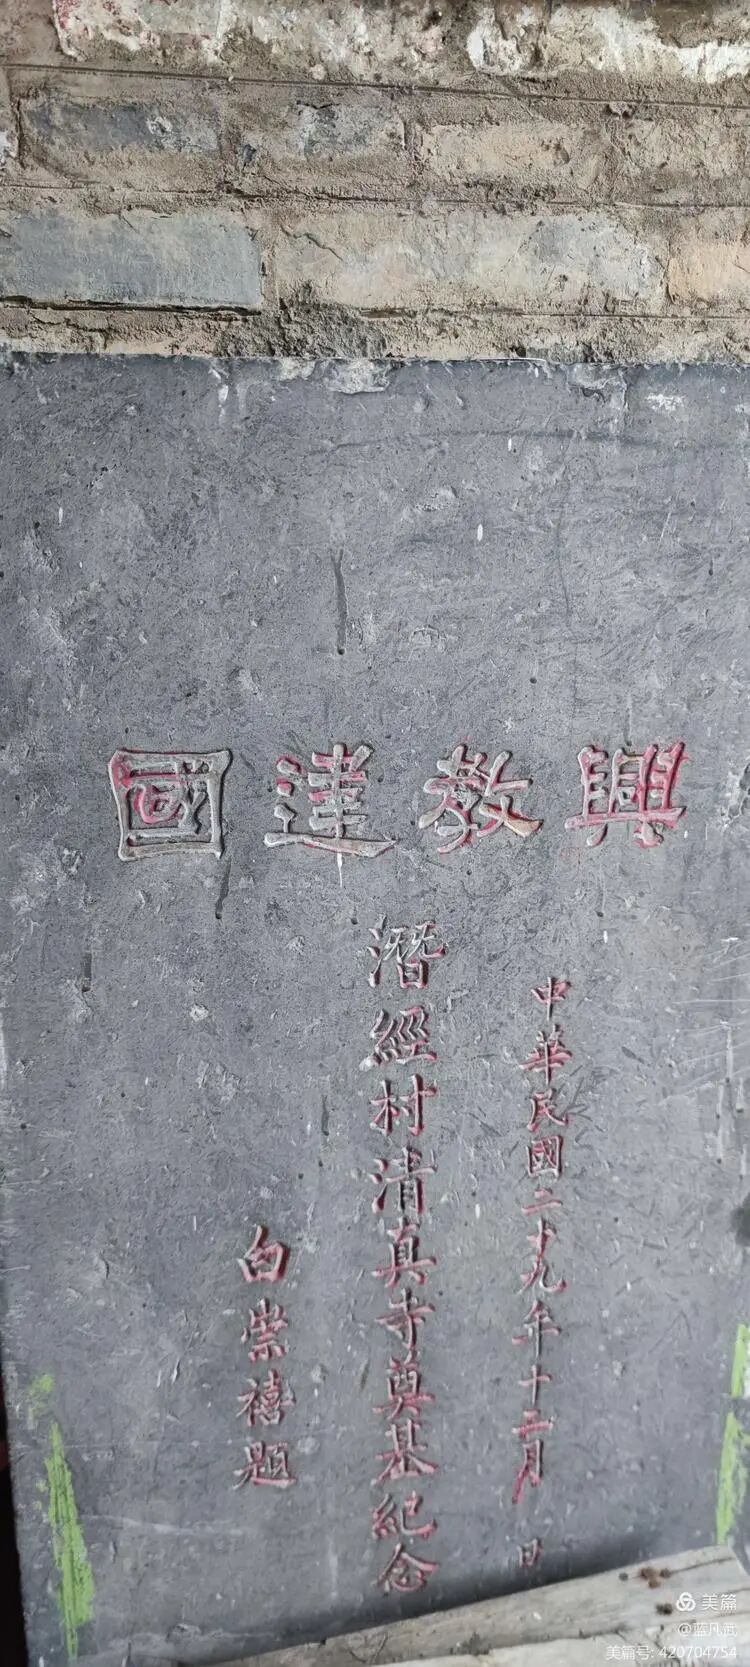 興教建國
中華民國二十九年十二月 日
潛經村清真寺奠基紀念
白崇禧題
美篇
@蓝凡武
美篇号: 420704754